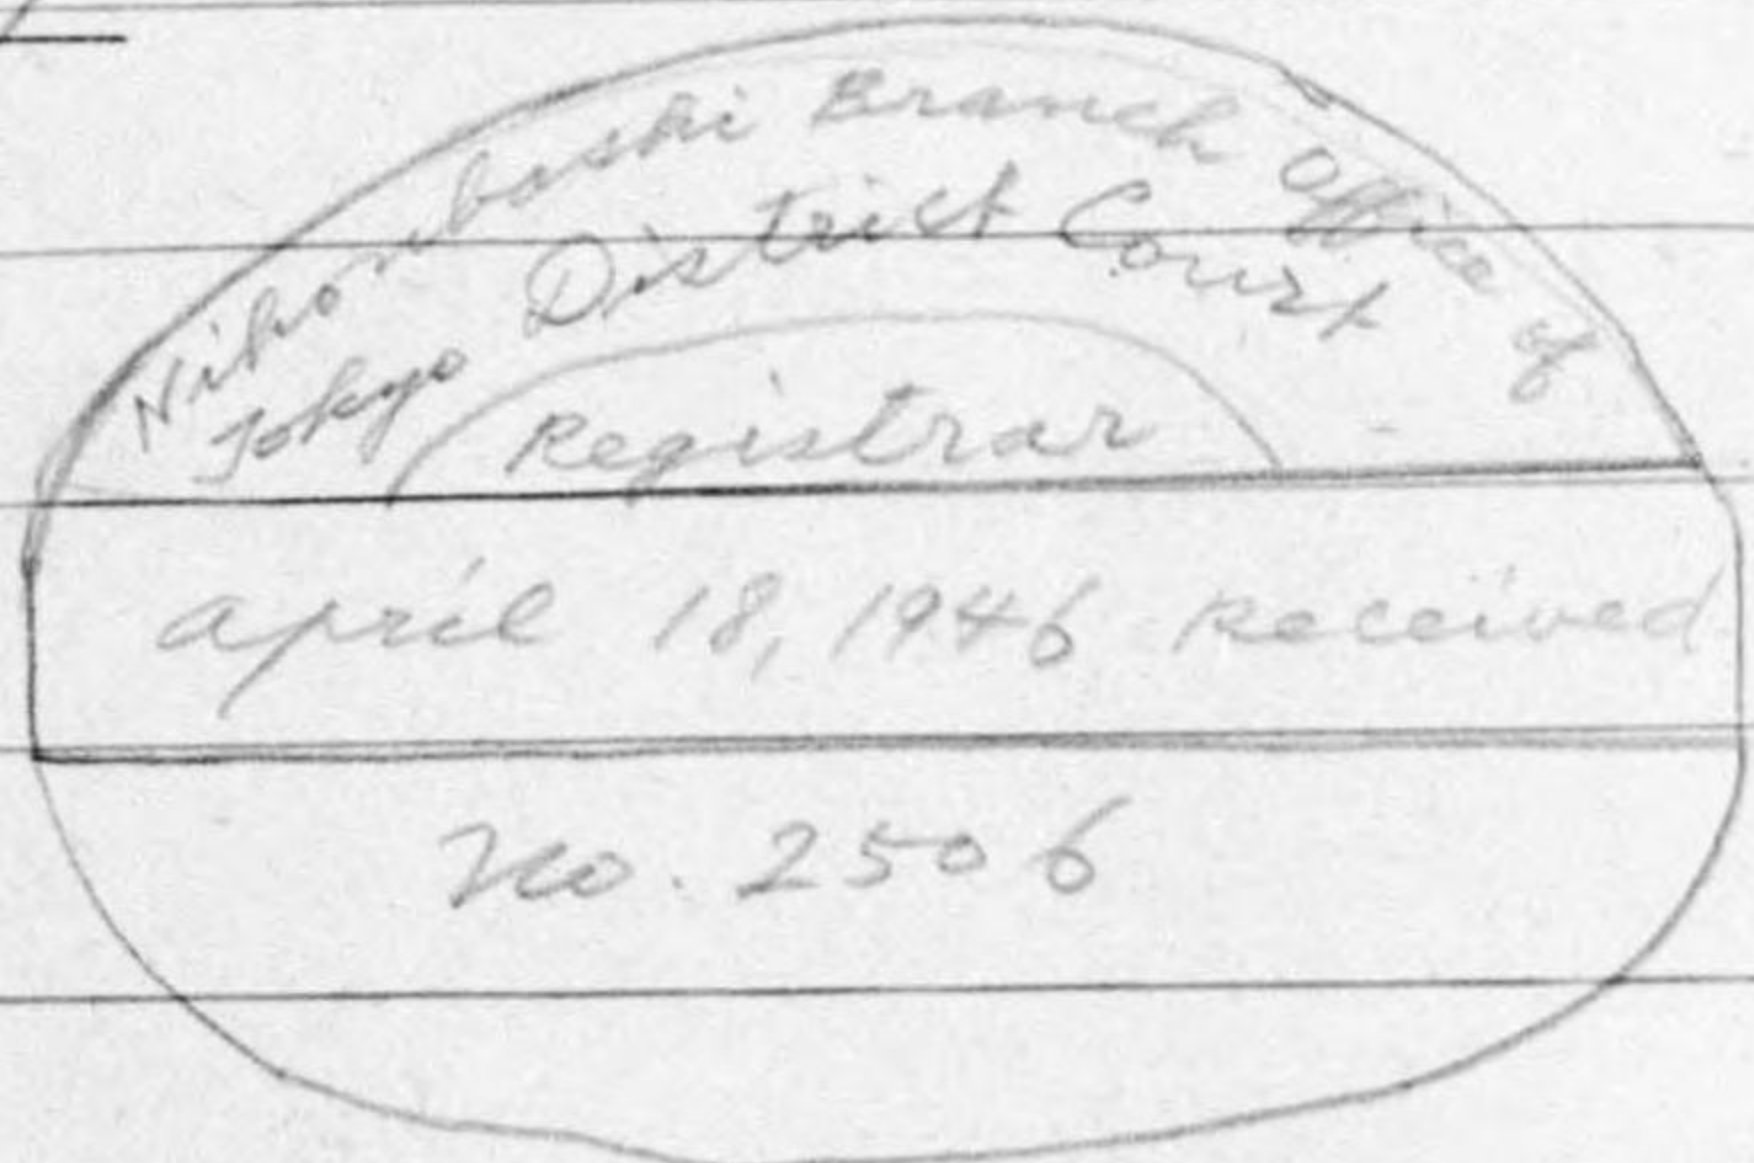 Nihombashi Branch Office of
Tokyo District Court
Registrar
April 18, 1946 Received
No. 2506